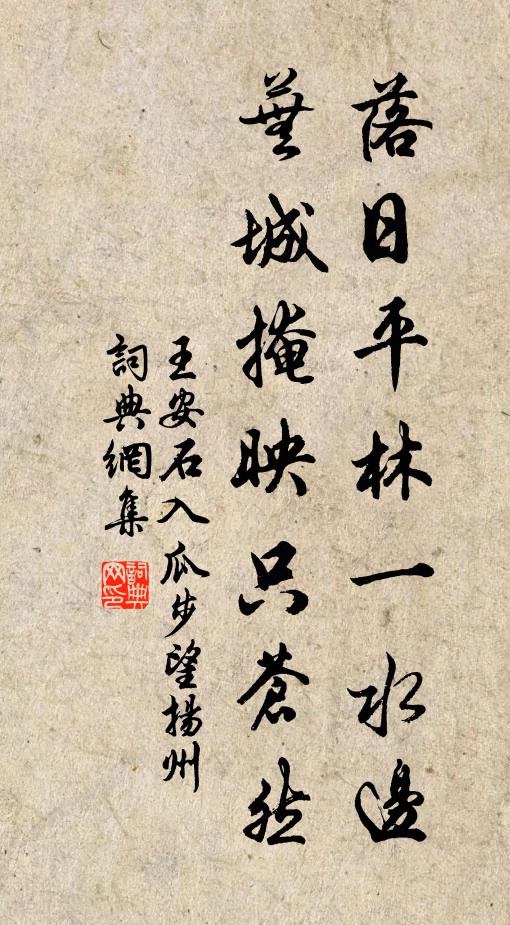 落日平林一水邊
蕪城掩映只蒼然
王安石入瓜步望揚州
詞典網集
詞典网印